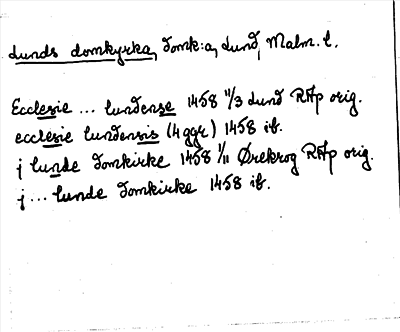 Lunds domkyrka, Domk:a, Lund, Malm. l.
Ecclesie ... lundense 1458 11/3 Lund RAp orig.
ecclesie lundensis (4 ggr) 1458 ib.
j lunde Domkirke 1458 1/11 Ørekrog RAp orig.
j ... lunde Domkirke 1458 ib.